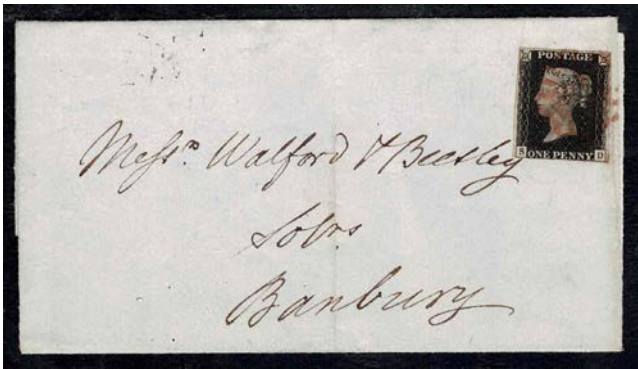 POSTAGE
S ONE PENNY D
Messrs Walford & Beesley
Solrs
Banbury